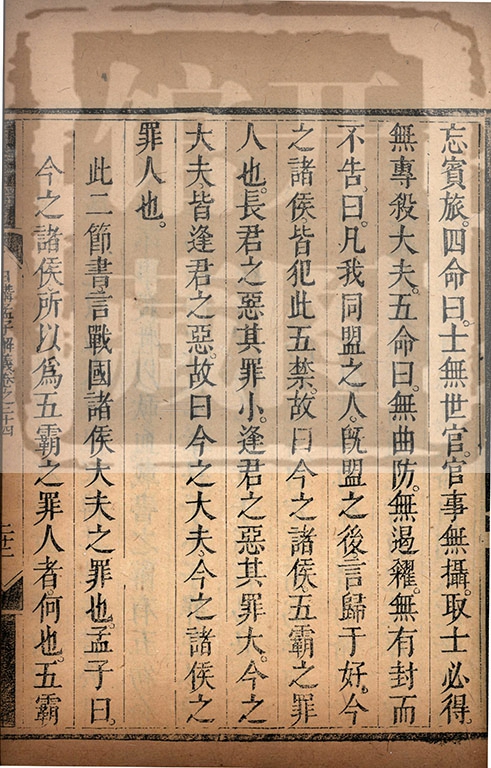 忘賓旅。四命曰。士無世官。官事無攝。取士必得。
無專殺大夫。五命曰。無曲防。無遏糴。無有封而
不告。曰。凡我同盟之人。旣盟之後。言歸于好。今
之諸侯。皆犯此五禁。故曰今之諸侯。五霸之罪
人也。長君之惡其罪小。逢君之惡其罪大。今之
大夫。皆逢君之惡。故曰今之大夫。今之諸侯之
罪人也。
此二節書言戰國諸侯大夫之罪也。孟子曰。
今之諸侯。所以爲五霸之罪人者。何也。五霸
日講四書解義卷之二十四
二十二